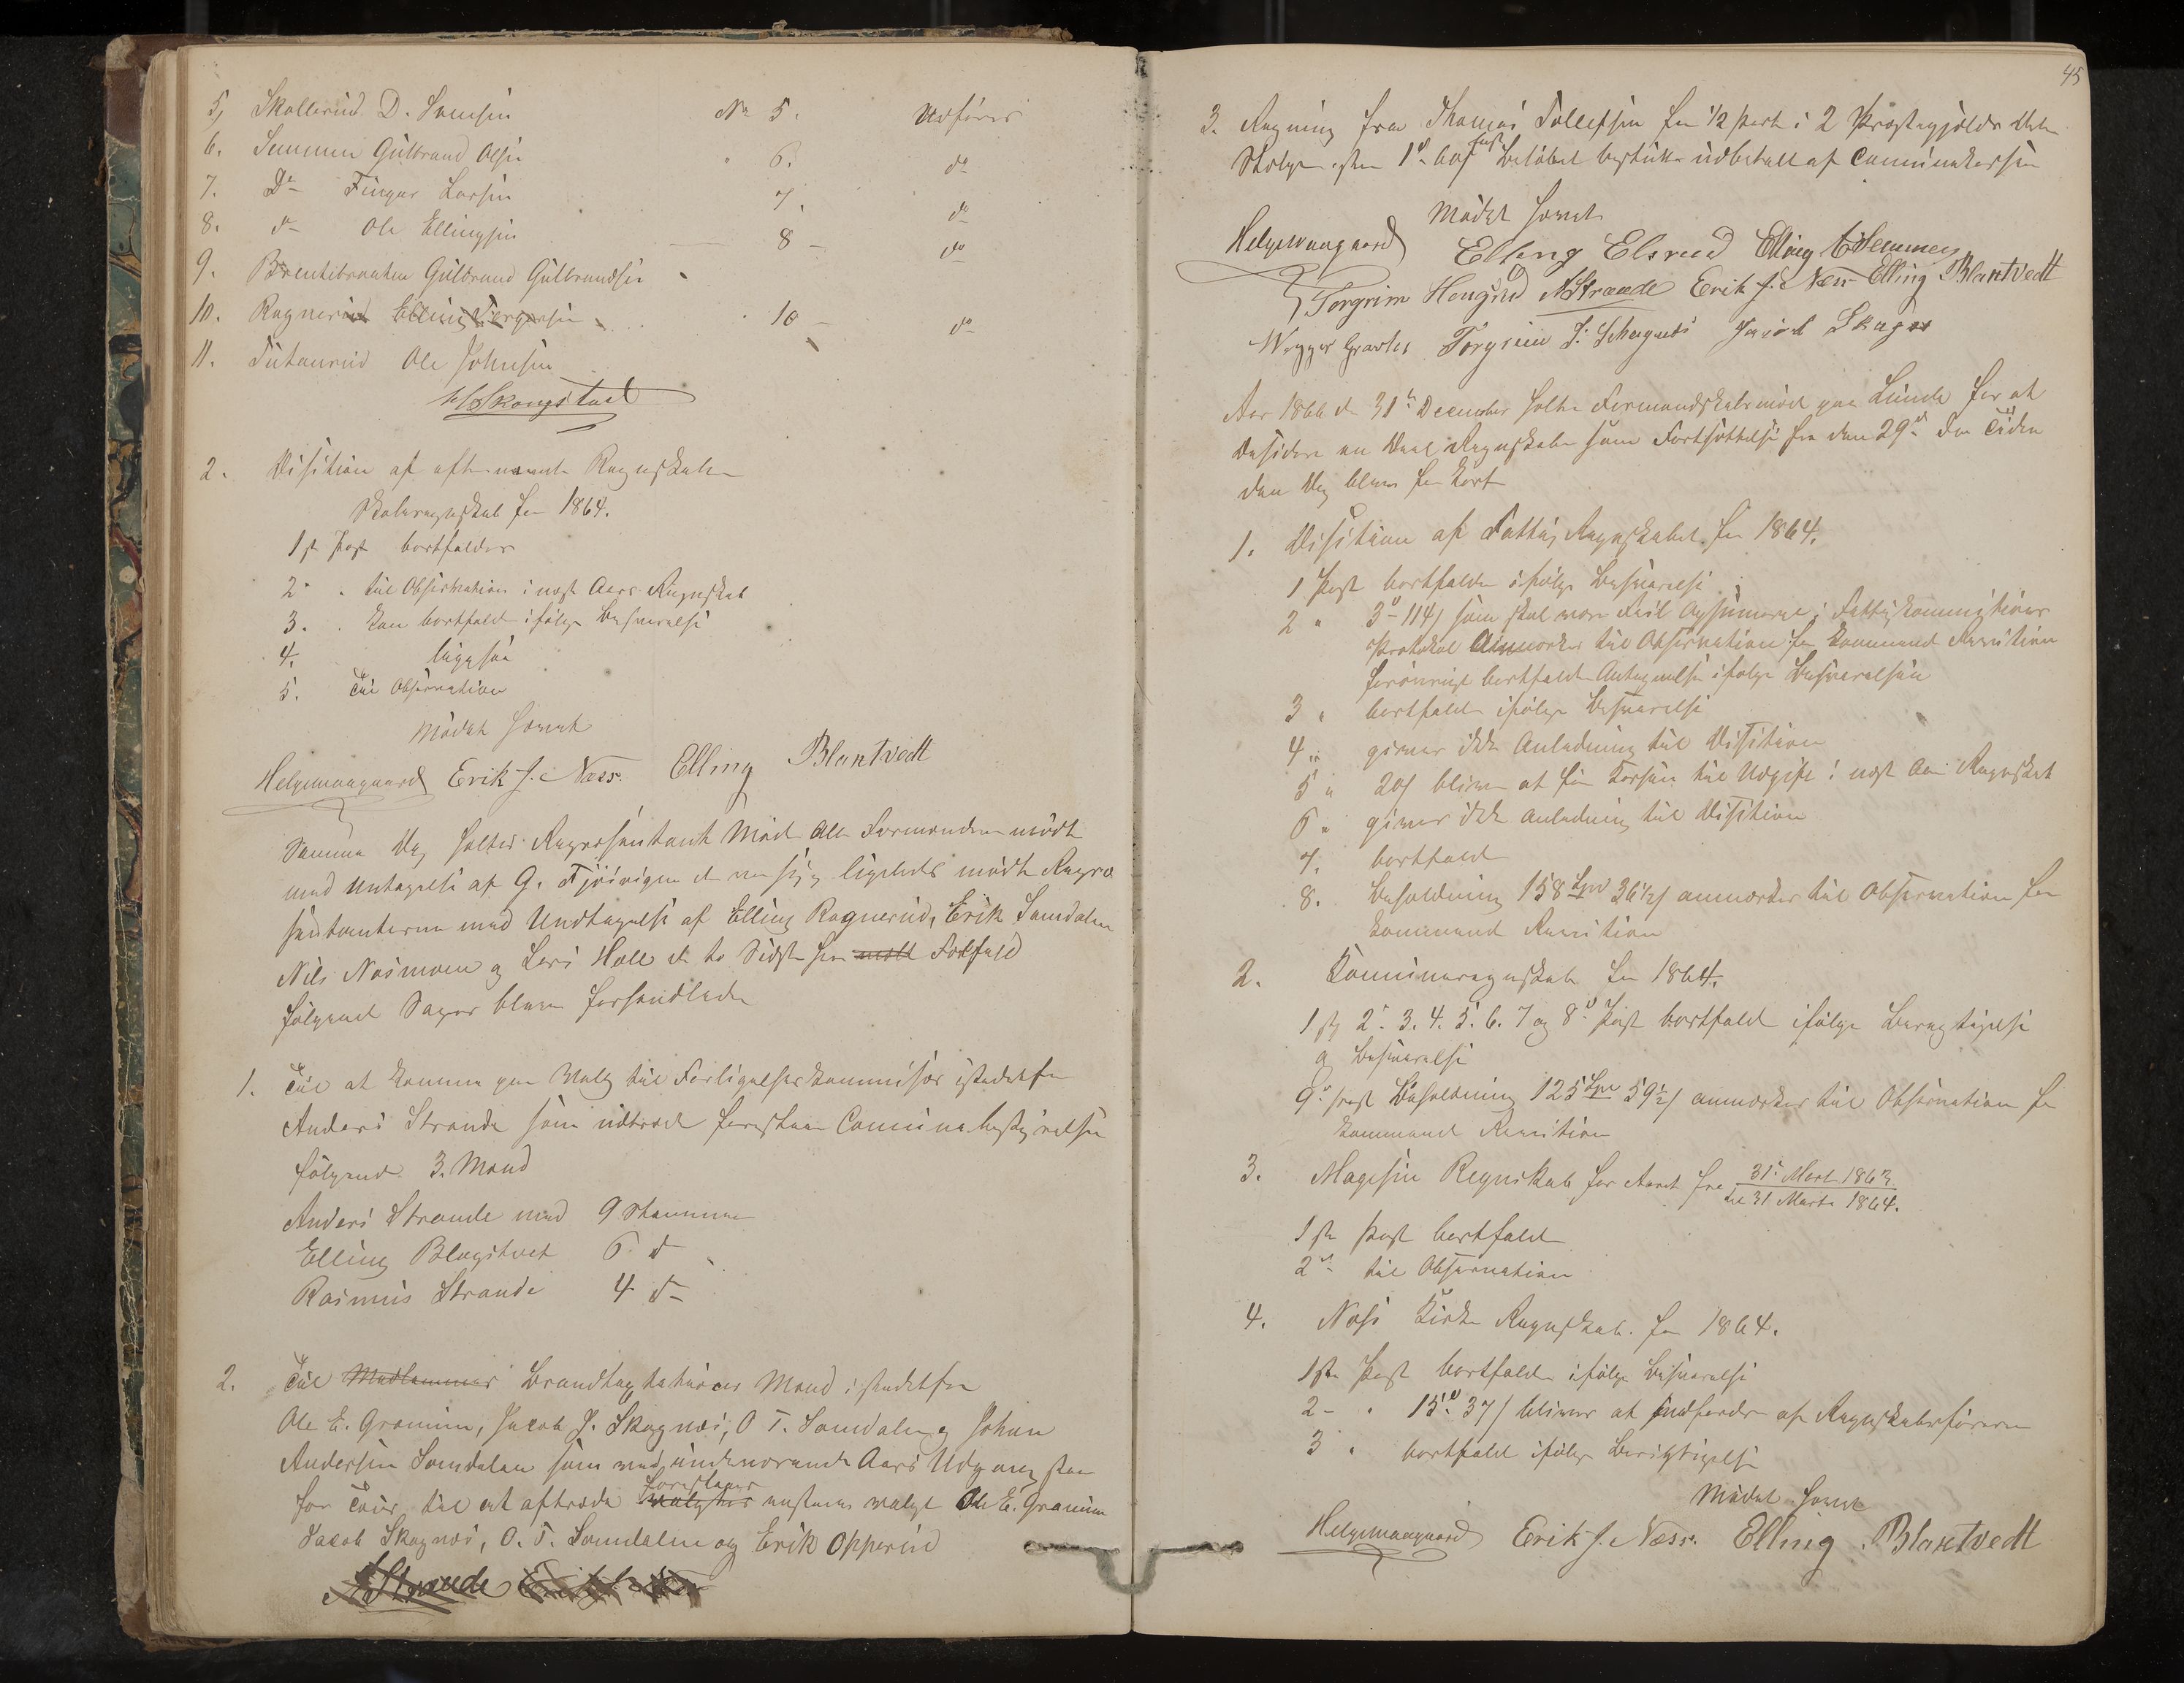 5, Skollerud D. Svensen No 5. Udføres
6. Semmen Gulbrand Olsen " 6. do
7. Do Fingar Larsen 7. do
8. do Ole Ellingsen 8 do
9. Brentebraaten Gulbrand Gulbrandsen
10. Ragnerud Elling Torgersen 10 do
11. Tutanrud Ole Johnsen
Skougstad
2. Desition af efternævnte Regnskaber
Skoleregnskab for 1864.
1ste Post bortfalder
2 " til Observation i næste Aars Regnskab
3. " kan bortfalde ifølge Besvarelse
4. ligesaa
5. Til Observation
Mødet hævet
Helgevaagaard Erik J. Næss. Elling Blaxtvedt
Samme Dag holtes Repræsentant Møde Alle Formændene mødte
med Untagelse af G. Tjøsvigen der var syg ligeledes mødte Repræ
sentanterne med Undtagelse af Elling Ragnerud, Erik Samdalen
Nils Næsmoen og Lars Hall de to Sidste har mælt Forfald
følgende Sager bleve forhandlede
1. Til at komme paa Valg til Forligelseskommisær istedetfor
Anders Strande som udtræde foreslaar Communebestyrelsen
følgende 3. Mænd
Anders Strande med 9 Stemmer
Elling Blagstvet 6 do
Rasmus Strande 4 do
2. Til Medlemmer Brandtagstations Mænd istedetfor
Ole E. Gramim, Jacob J. Skagnæs, O T. Samdalen og Johan
Andersen Samdalen som med indeværende Aars Udgang staar
for Tour til at aftræde valgtes Foreslaaes Ole E. Gramim
Jacob Skagnæs, O. T. Samdalen og Erik Opperud
AStrande
45
3. Regning fra Thomas Tollefsen for 1/2 Part i 2 Præstegjelds
Stolper 1d 60s Beløbet besluttes udbetalt af Communekassen
Mødet hævet
Helgevaagaard Elling Elsrud Elling E Semmen
Torgrim Hougsrud AStrande Erik J. Næss Elling Blaxtvedt
Torgrim J. Skagnæs Jacob Skagnæs
Aar 1866 d 31te December holtes Formandskabsmøde paa Lunde for at
desidere en Deel Regnskaber som Fortsættelse fra den 29de da Tiden
den Dag blev for kort
1. Desition af Fattig Regnskabet for 1864.
1 Post bortfalder ifølge Besvarelse
2 " 3d 114s som skal være Feil Opsumeret i Fattigkommisionens
Protokol Anmærkes til Observation for kommende Revision
forøvrigt bortfalder Antegnelsen ifølge Besvarelsen
3 " bortfalder ifølge Besvarelse
4 " giver ikke Anledning til Desition
5 " 20s bliver at føre Kassen til Udgift i næste Aars Regnskab
6 " giver ikke Anledning til Desition
7. bortfalder
8. Beholdning 158 Spd 36 1/2s anmærkes til Observation for
kommende Revision
2. Kommuneregnskab for 1864.
1ste 2. 3. 4. 5. 6. 7 og 8de Post bortfalder ifølge Berigtigelse
og Besvarelse
9de Post Beholdning 125 Spd 59 1/2s anmærkes til Observation for
kommende Revision
3. Magesin Regnskab for Aaret fra 31te Marts 1863
til 31 Marts 1864.
1ste Post bortfalder
2de til Observation
4. Næss Kirke Regnskab for 1864.
1ste Post bortfalder ifølge Besvarelse
2 - " 15d 37s bliver at indfordre af Regnskabsføreren
3 " bortfalder ifølge Berigtigelse
Mødet hævet
Helgevaagaard Erik J. Næss. Elling Blaxtvedt